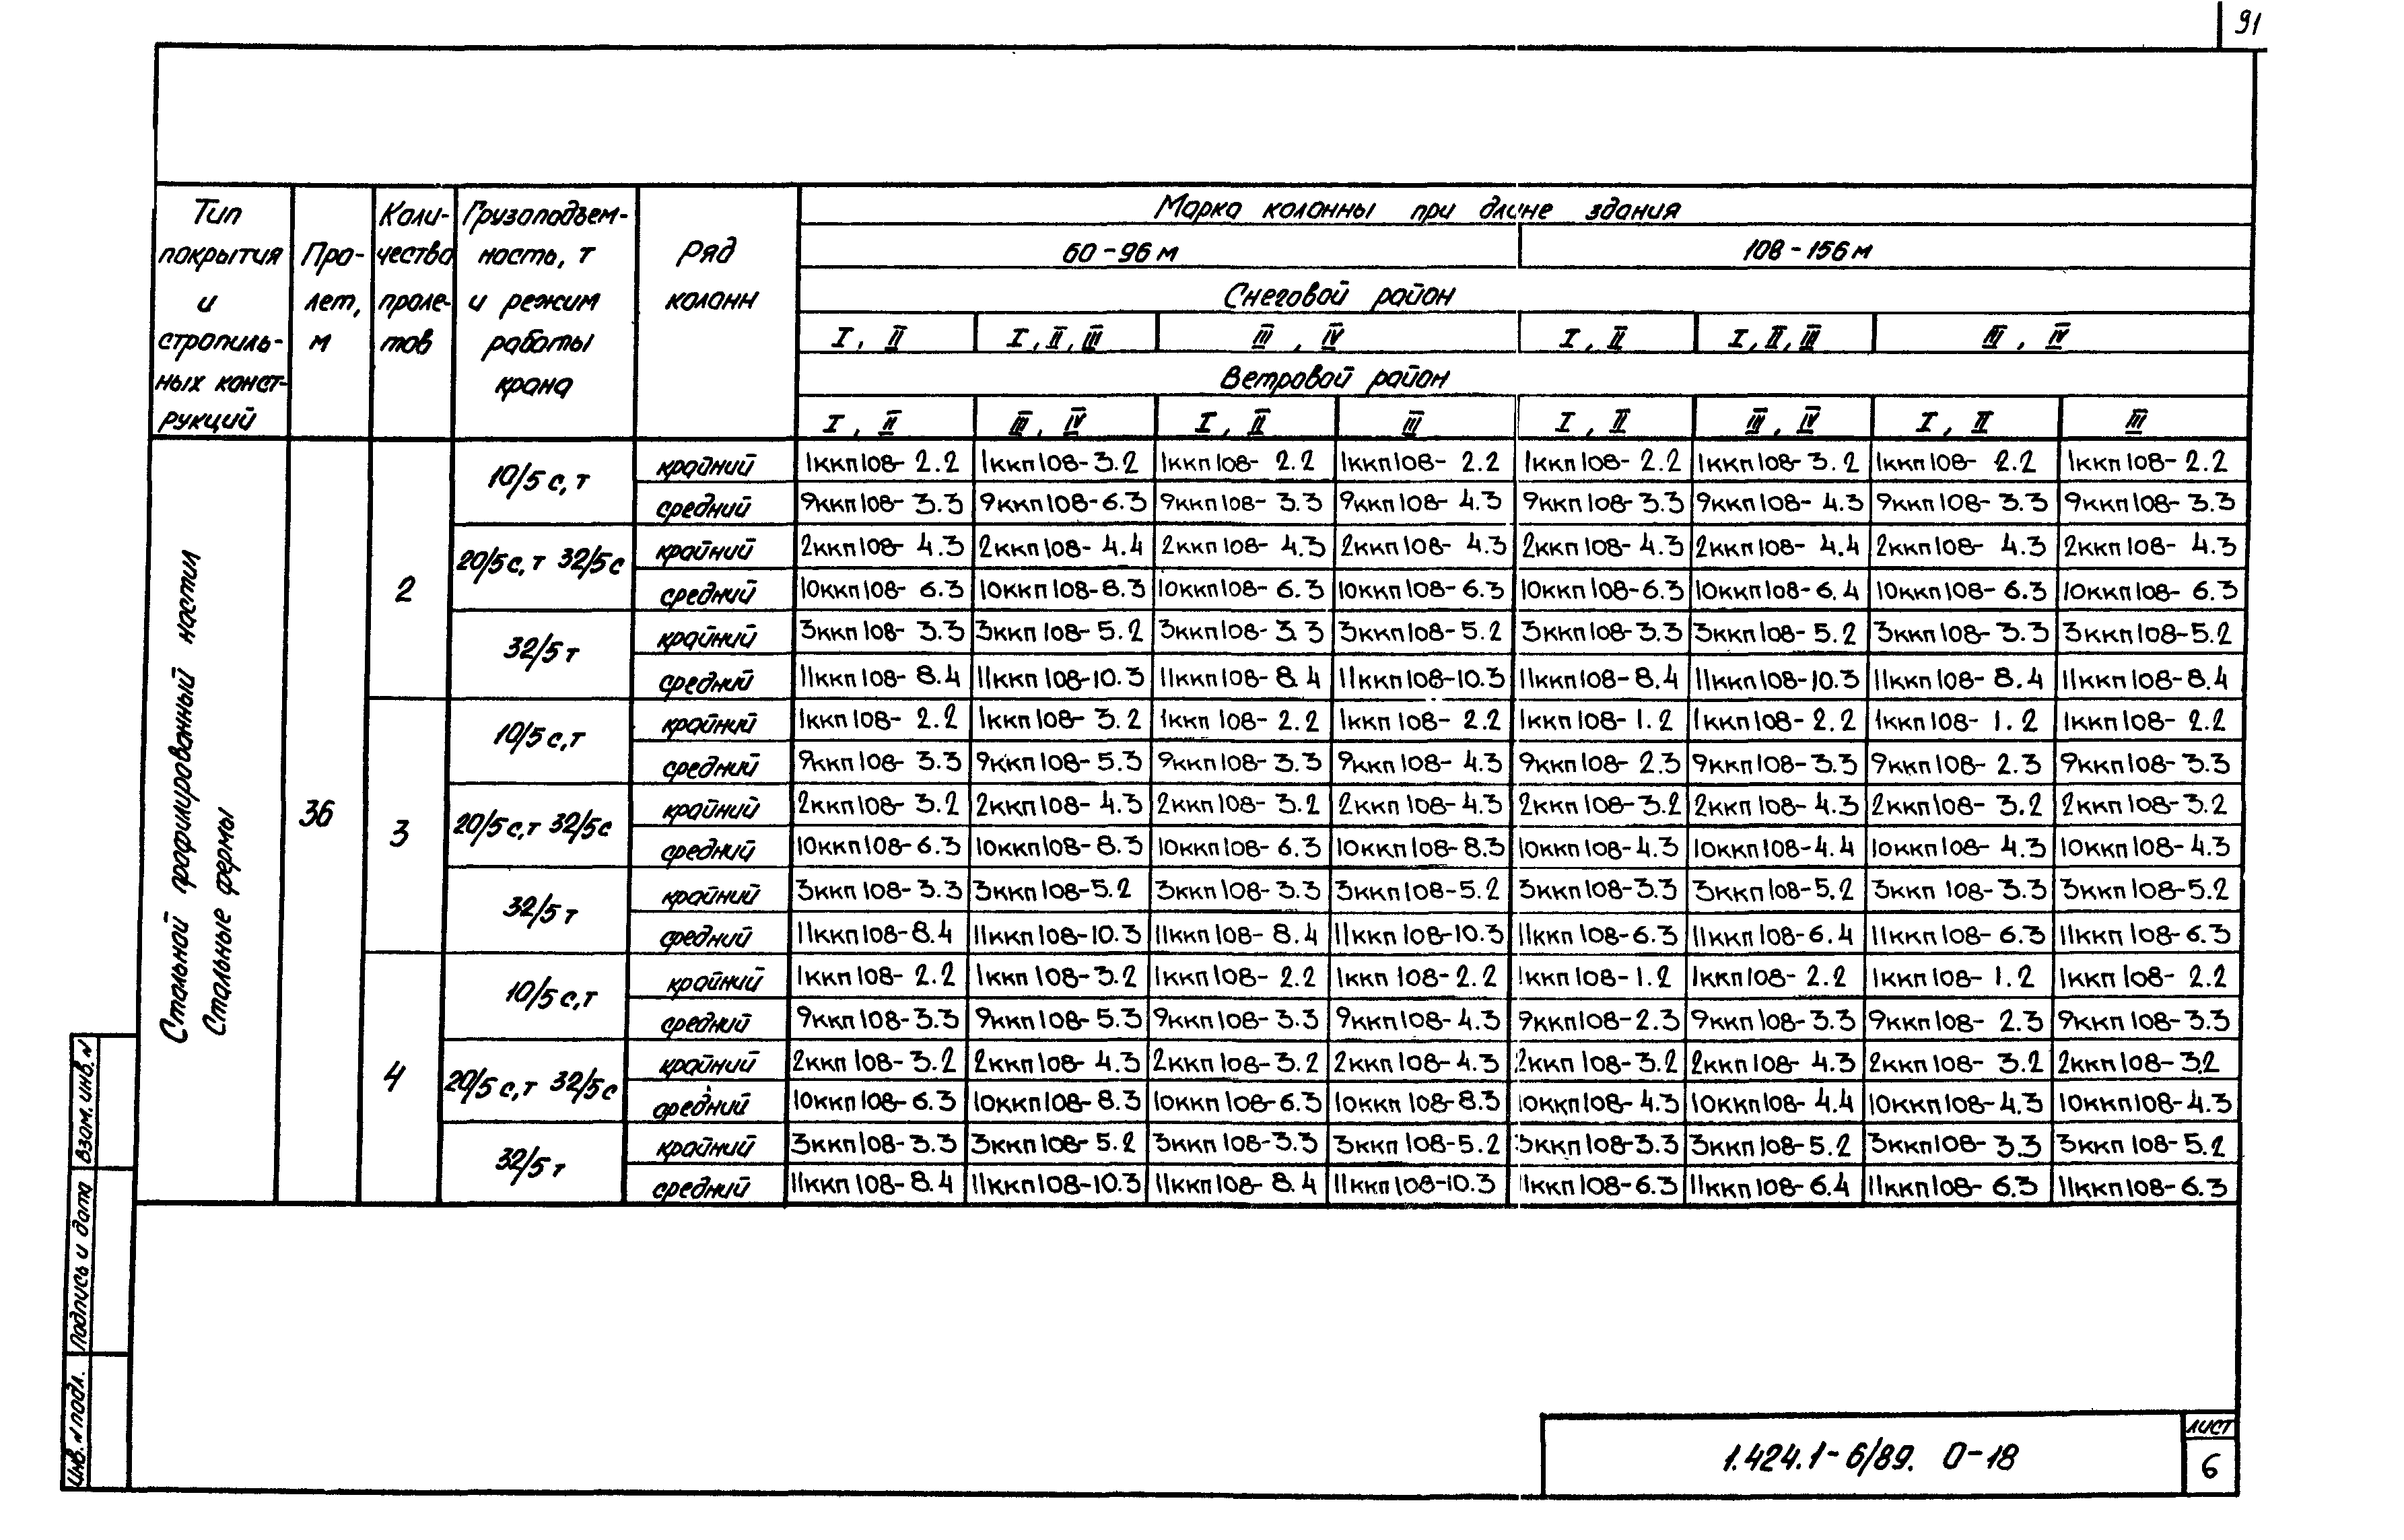 91
Тип покрытия и стропильных конструкций
Пролет, м
Количество пролетов
Грузоподъемность, т и режим работы крана
Ряд колонн
Марка колонны при длине здания
60-96 м 108-156 м
Снеговой район
I, II I, II, III III, IV I, II I, II, III III, IV
Ветровой район
I, II III, IV I, II III I, II III, IV I, II III
Стальной профилированный настил
Стальные фермы
36
2
10/5 с, т
крайний 1ккп108-2.2 1ккп108-3.2 1ккп108-2.2 1ккп108-2.2 1ккп108-2.2 1ккп108-3.2 1ккп108-2.2 1ккп108-2.2
средний 9ккп108-3.3 9ккп108-6.3 9ккп108-3.3 9ккп108-4.3 9ккп108-3.3 9ккп108-4.3 9ккп108-3.3 9ккп108-3.3
20/5 с, т 32/5 с
крайний 2ккп108-4.3 2ккп108-4.4 2ккп108-4.3 2ккп108-4.3 2ккп108-4.3 2ккп108-4.4 2ккп108-4.3 2ккп108-4.3
средний 10ккп108-6.3 10ккп108-8.3 10ккп108-6.3 10ккп108-6.3 10ккп108-6.3 10ккп108-6.4 10ккп108-6.3 10ккп108-6.3
32/5 т
крайний 3ккп108-3.3 3ккп108-5.2 3ккп108-3.3 3ккп108-5.2 3ккп108-3.3 3ккп108-5.2 3ккп108-3.3 3ккп108-5.2
средний 11ккп108-8.4 11ккп108-10.3 11ккп108-8.4 11ккп108-10.3 11ккп108-8.4 11ккп108-10.3 11ккп108-8.4 11ккп108-8.4
3
10/5 с, т
крайний 1ккп108-2.2 1ккп108-3.2 1ккп108-2.2 1ккп108-2.2 1ккп108-1.2 1ккп108-2.2 1ккп108-1.2 1ккп108-2.2
средний 9ккп108-3.3 9ккп108-5.3 9ккп108-3.3 9ккп108-4.3 9ккп108-2.3 9ккп108-3.3 9ккп108-2.3 9ккп108-3.3
20/5 с, т 32/5 с
крайний 2ккп108-3.2 2ккп108-4.3 2ккп108-3.2 2ккп108-4.3 2ккп108-3.2 2ккп108-4.3 2ккп108-3.2 2ккп108-3.2
средний 10ккп108-6.3 10ккп108-8.3 10ккп108-6.3 10ккп108-8.3 10ккп108-4.3 10ккп108-4.4 10ккп108-4.3 10ккп108-4.3
32/5 т
крайний 3ккп108-3.3 3ккп108-5.2 3ккп108-3.3 3ккп108-5.2 3ккп108-3.3 3ккп108-5.2 3ккп108-3.3 3ккп108-5.2
средний 11ккп108-8.4 11ккп108-10.3 11ккп108-8.4 11ккп108-10.3 11ккп108-6.3 11ккп108-6.4 11ккп108-6.3 11ккп108-6.3
4
10/5 с, т
крайний 1ккп108-2.2 1ккп108-3.2 1ккп108-2.2 1ккп108-2.2 1ккп108-1.2 1ккп108-2.2 1ккп108-1.2 1ккп108-2.2
средний 9ккп108-3.3 9ккп108-5.3 9ккп108-3.3 9ккп108-4.3 9ккп108-2.3 9ккп108-3.3 9ккп108-2.3 9ккп108-3.3
20/5 с, т 32/5 с
крайний 2ккп108-3.2 2ккп108-4.3 2ккп108-3.2 2ккп108-4.3 2ккп108-3.2 2ккп108-4.3 2ккп108-3.2 2ккп108-3.2
средний 10ккп108-6.3 10ккп108-8.3 10ккп108-6.3 10ккп108-8.3 10ккп108-4.3 10ккп108-4.4 10ккп108-4.3 10ккп108-4.3
32/5 т
крайний 3ккп108-3.3 3ккп108-5.2 3ккп108-3.3 3ккп108-5.2 3ккп108-3.3 3ккп108-5.2 3ккп108-3.3 3ккп108-5.2
средний 11ккп108-8.4 11ккп108-10.3 11ккп108-8.4 11ккп108-10.3 11ккп108-6.3 11ккп108-6.4 11ккп108-6.3 11ккп108-6.3
Взам. инв. N
Подпись и дата
Инв. N подл.
1.424.1-6/89. 0-18
лист
6